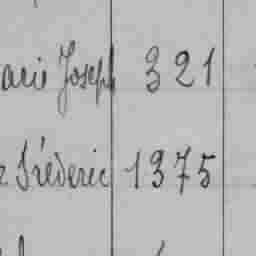 arie Joseph 321
Fréderic 1375